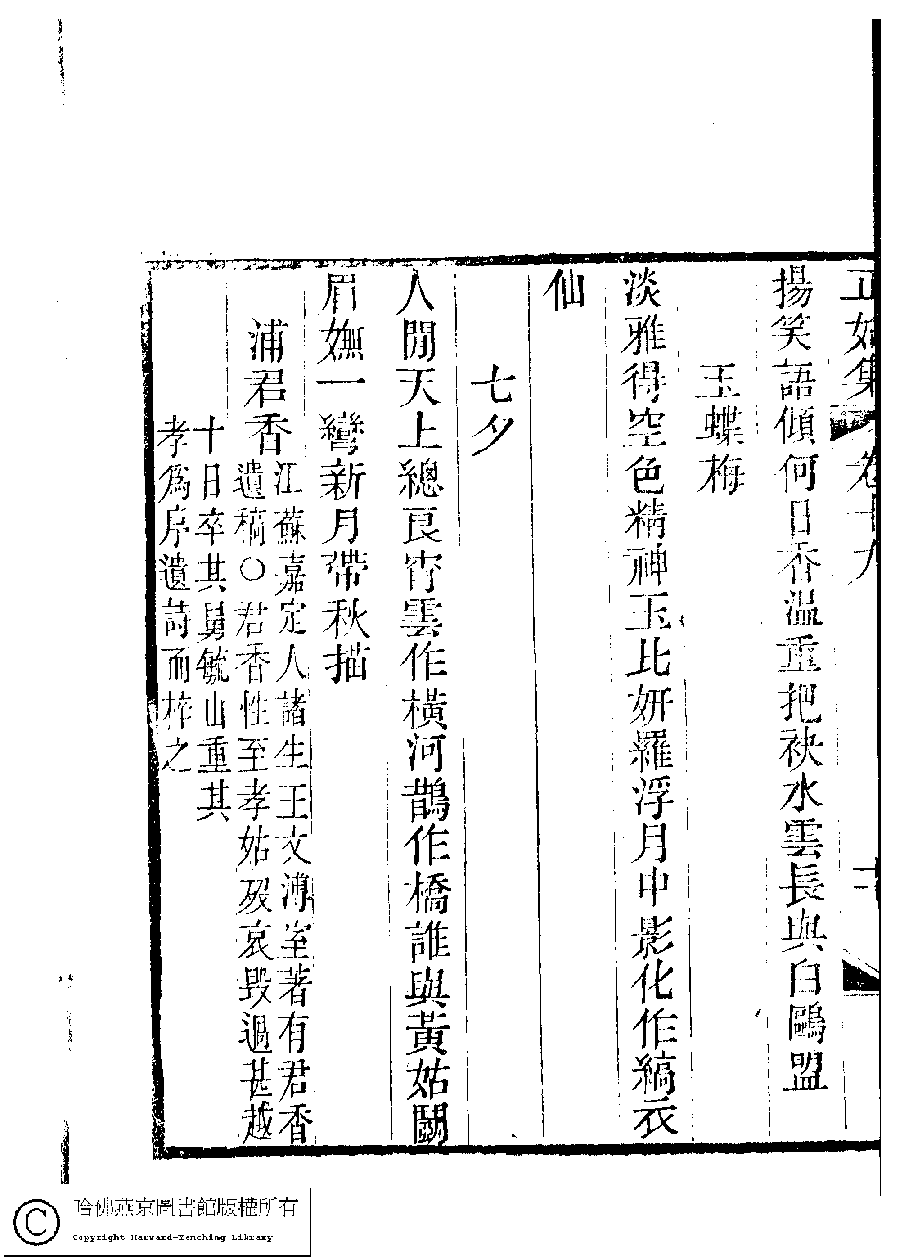 正始集 卷十九 十
揚笑語傾何日香溫重把袂水雲長與白鷗盟
玉蝶梅
淡雅得空色精神玉比妍羅浮月中影化作縞衣
仙
七夕
人閒天上總良宵雲作橫河鵲作橋誰與黃姑鬭
眉嫵一彎新月帶秋描
浦君香
江蘇嘉定人諸生王文溥室著有君香
遺稿○君香性至孝姑歿哀毀過甚越
十日卒其舅毓山重其
孝爲序遺詩而梓之
哈佛燕京圖書館版權所有
Copyright Harvard-Yenching Library